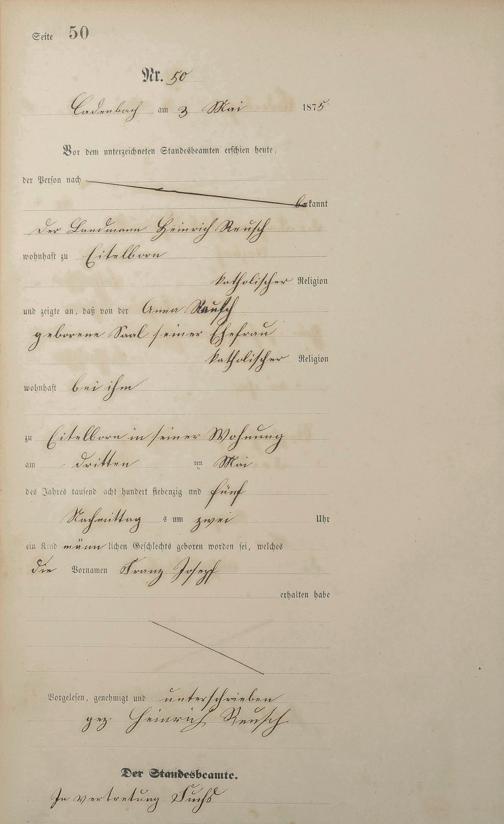 Seite 50
Nr. 50
Cadenbach am 3 Mai 1875
Vor dem unterzeichneten Standesbeamten erschien heute,
der Person nach
bekannt
der Landmann Heinrich Reusch
wohnhaft zu Eitelborn
katholischer Religion
und zeigte an, daß von der Anna Reusch
geborene Saal seiner Ehefrau
katholischer Religion
wohnhaft bei ihm
zu Eitelborn in seiner Wohnung
am dritten ten Mai
des Jahres tausend acht hundert siebenzig und fünf
Nachmittag s um zwei Uhr
ein Kind männlichen Geschlechts geboren worden sei, welches
die Vornamen Franz Josepf
erhalten habe
Vorgelesen, genehmigt und unterschrieben
gez Heinrich Reusch
Der Standesbeamte.
In vertretung Fuchs